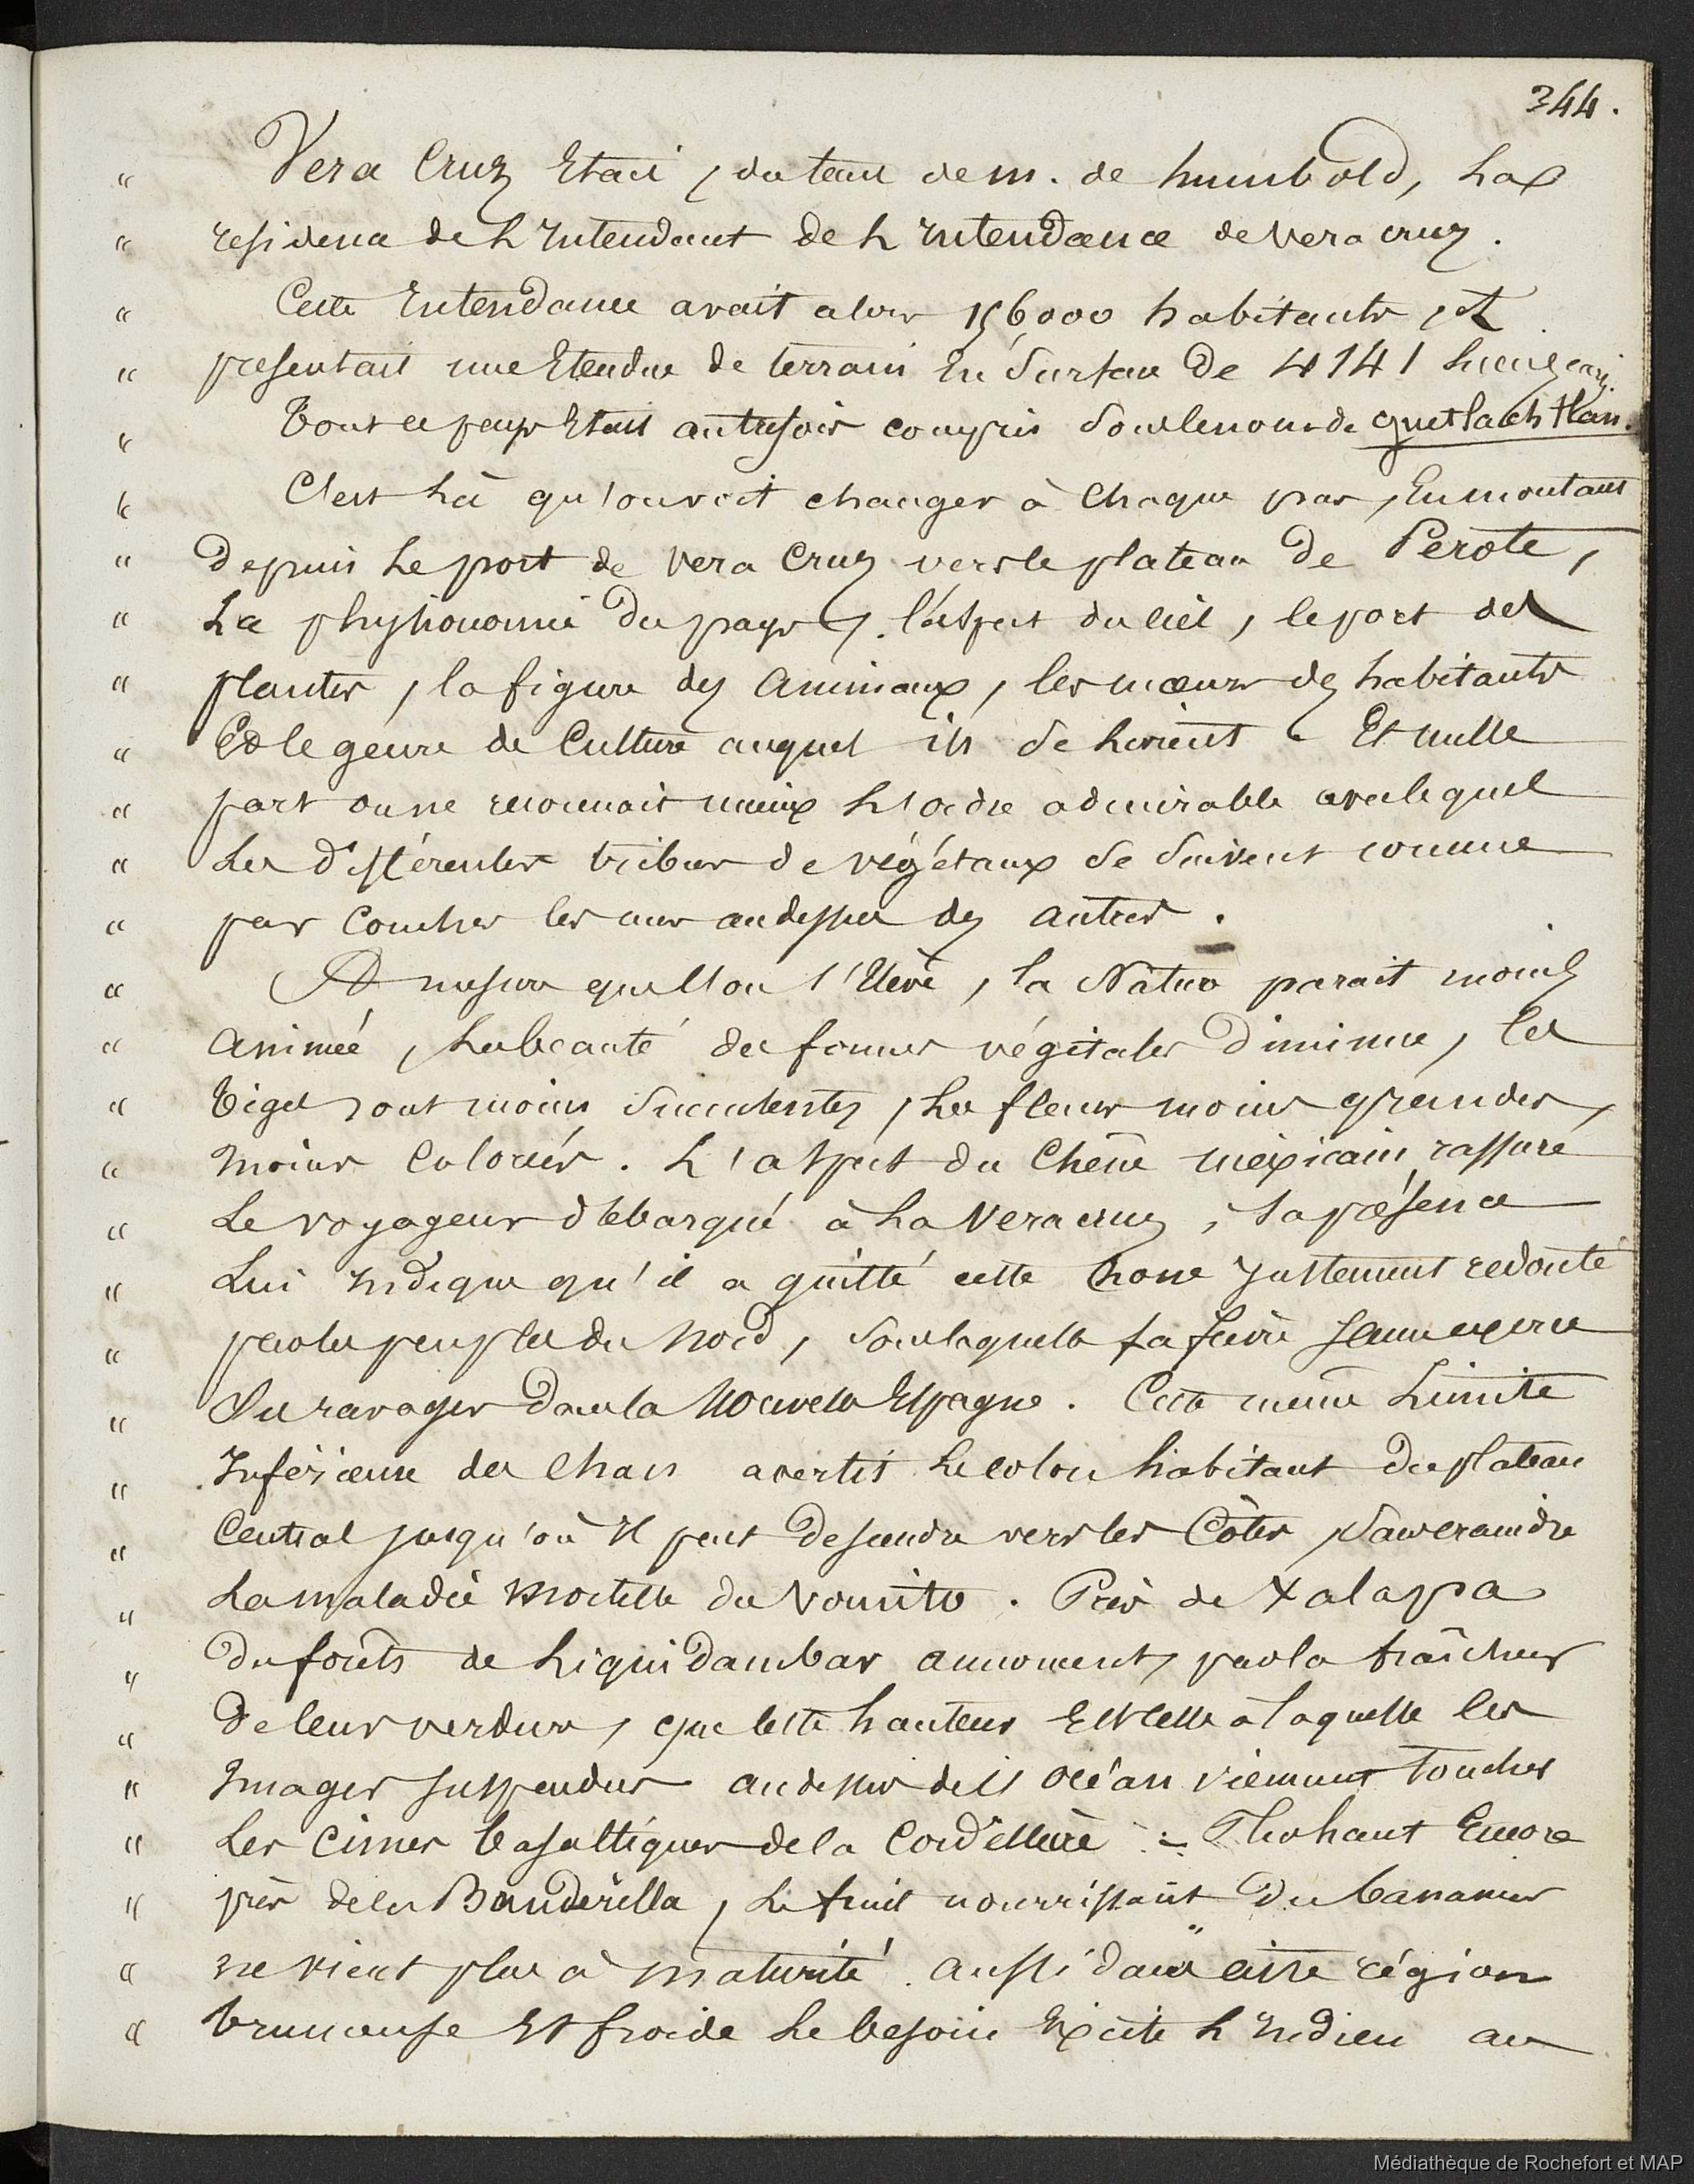 344.
" Vera Cruz Etait, du tems de m. de humbold, La
" residence de L Intendant de L Intendance de vera cruz.
" Cette Intendance avait alors 156000 habitants, et
" presentait une Etendue de terrain En Surface De 4141 Lieues car.
" Tout ce pays Etait autrefois compris Sous le nom de Quetlachtlan.
" C'est Là qu'on voit changer à Chaque pas, En montant
" Depuis Le port de vera Cruz vers le plateau De Perote,
" La physionomie Du pays, l'aspect du ciel, le port des
" plantes, la figure des Animaux, les mœurs des habitants
" Et le genre de Culture auquel ils se livrent. Et nulle
" part on ne reconnait mieux L'ordre admirable avec lequel
" Les Différentes tribus de végétaux Se Suivent comme
" par Couches les unes au dessus des autres.
" A mesure que l'on s'Elève, la Nature parait moins
" Animée, La beauté des formes végétales Diminue, les
" Tiges sont moins Succulentes, Les fleurs moins grandes,
" Moins Colorées. L'aspect du Chêne mexicain rassure
" Le voyageur debarqué à La Vera cruz, sa présence
" Lui Indique qu'il a quitté cette Zone Justement redouté
" par les peuples du Nord, Sous laquelle la fièvre Jaune exerce
" Ses ravages Dans la Nouvelle Espagne. Cette meme Limite
" Inférieure des Chênes avertit Le colon habitant Du plateau
" Central jusqu'où Il peut Descendre vers les Côtes, Sans craindre
" La maladie Mortelle du Vomito. Près de Xalapa
" Des forêts de Liquidambar annoncent, par la fraîcheur
" De leur verdure, que cette hauteur Est celle à laquelle les
" Nuages suspendus au dessus de l'océan viennent Toucher
" Les Cimes Basaltiques de la Cordillère. Plus haut Encore
" près de la Banderilla, Le fruit nourrissant Du Bananier
" ne vient plus à Maturité. aussi dans cette région
" brumeuse Et froide Le besoin Excite L'Indien au
Médiathèque de Rochefort et MAP